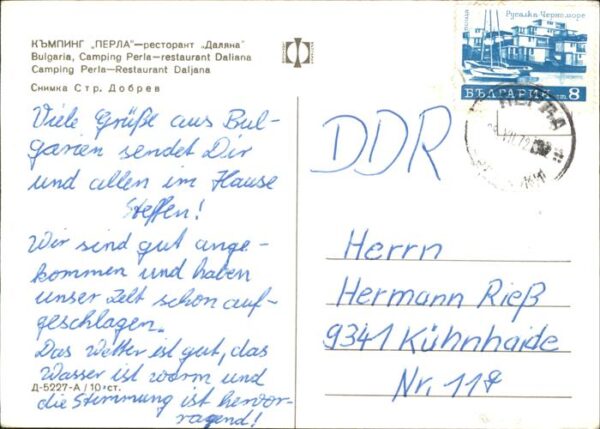 КЪМПИНГ „ПЕРЛА"—ресторант „Даляна"
Bulgaria, Camping Perla—restaurant Daliana
Camping Perla—Restaurant Daljana
Снимка Стр. Добрев
Viele Grüße aus Bul-
garien sendet Dir
und allen im Hause
Steffen!
Wir sind gut ange-
kommen und haben
unser Zelt schon auf-
geschlagen.
Das Wetter ist gut, das
Wasser ist warm und
die Stimmung ist hervor-
ragend!
Д-5227-А / 10 ст.
поща
Русалка Черноморе
БЪЛГАРИЯ ст. 8
ПЕРЛА
VII.72
DDR
Herrn
Hermann Rieß
9341 Kühnhaide
Nr. 117